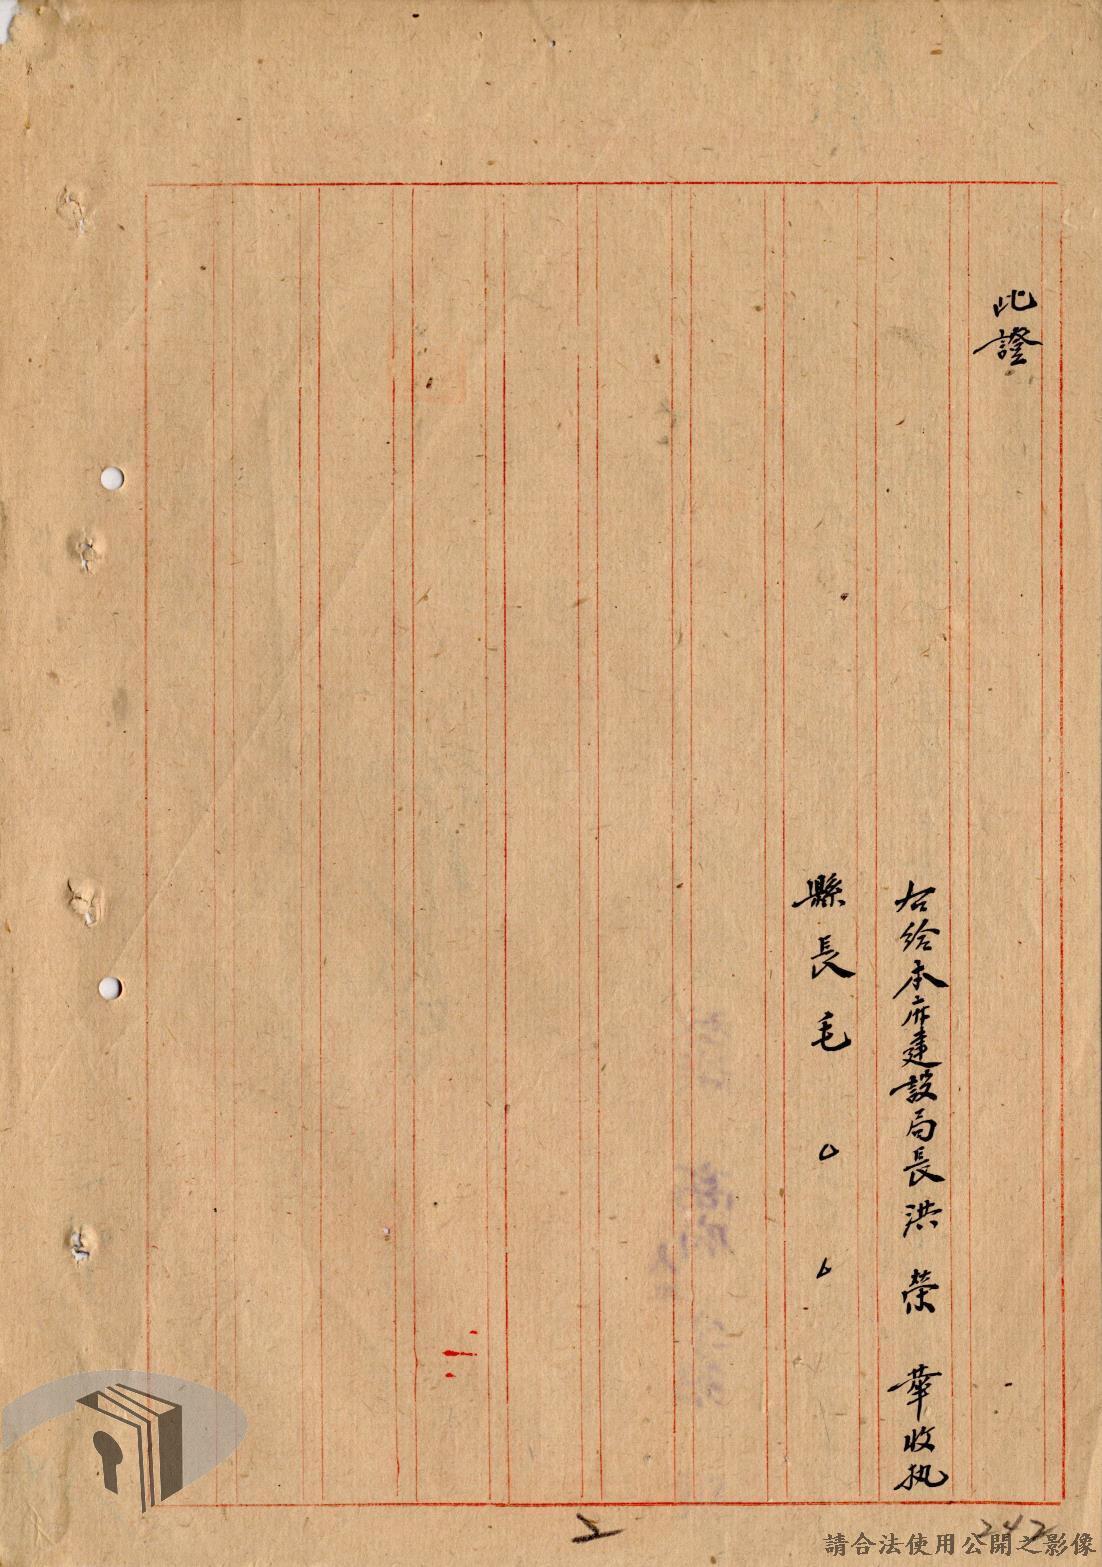 此證
右給本府建設局長洪榮華收执
縣長毛○○
2
242
請合法使用公開之影像